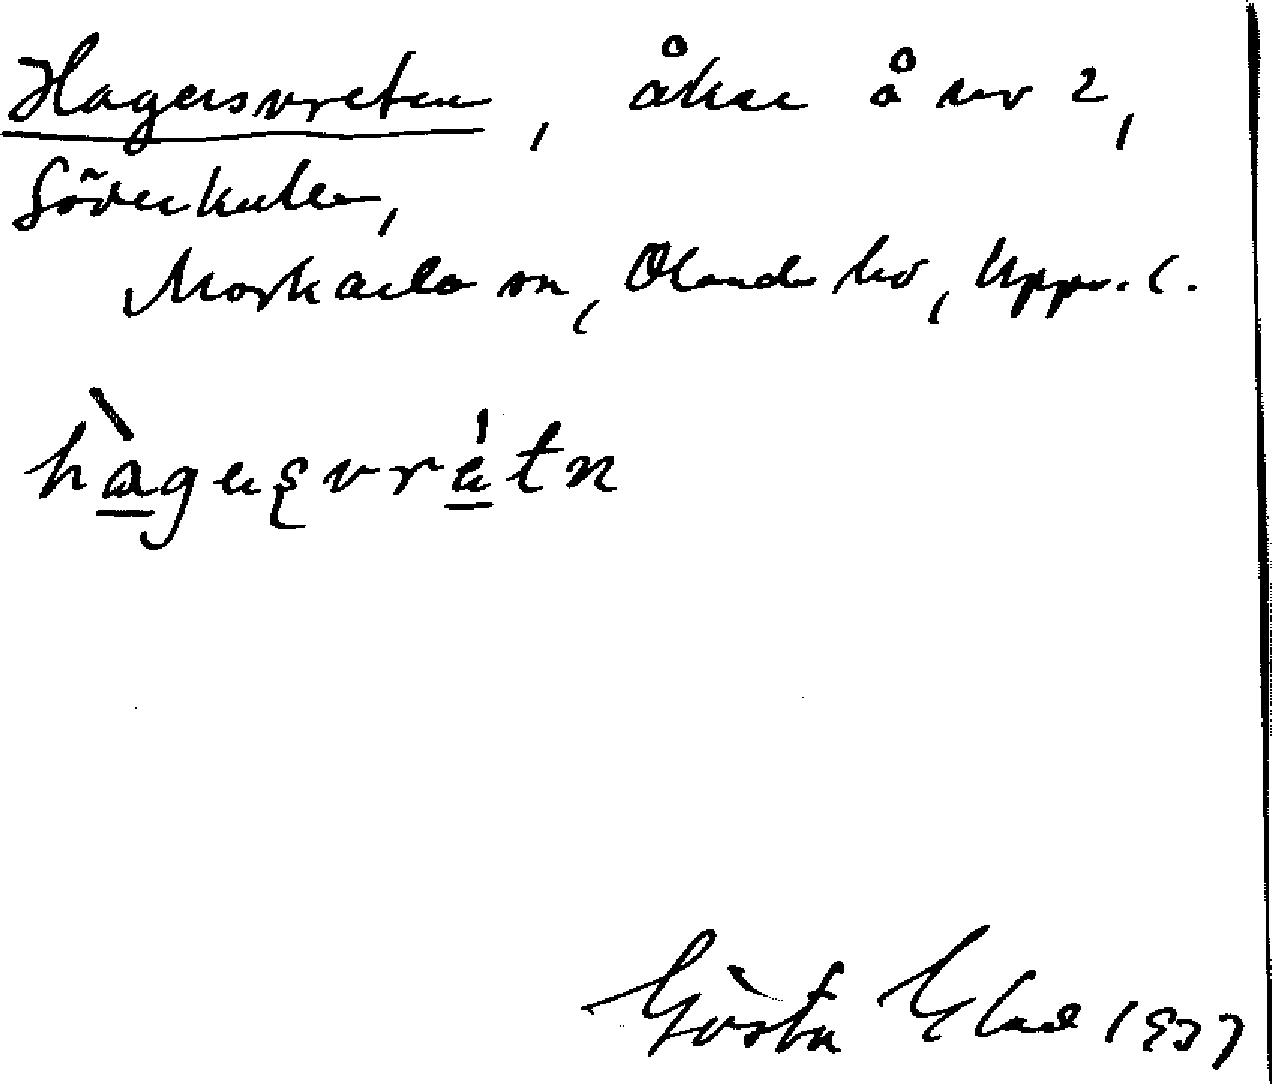 Hagersvreten, åker å nr 2,
Söderkulla,
Morkarla sn, Olands hd, Upps. l.
hàgeʂvrétn
Gösta 1937